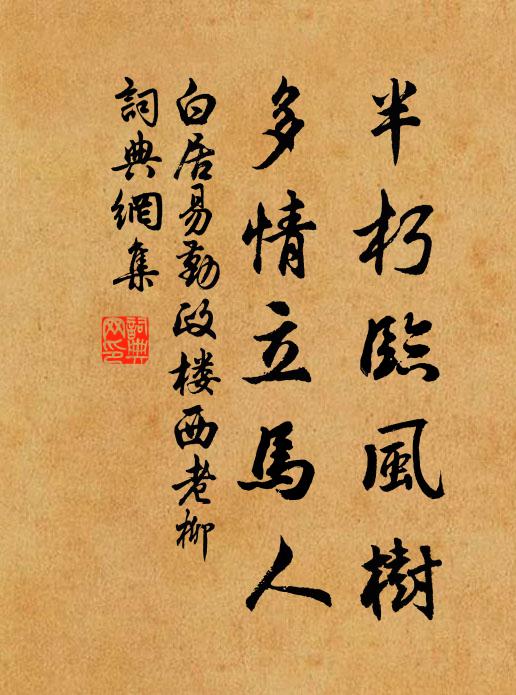 半朽臨風樹
多情立馬人
白居易勤政楼西老柳
詞典網集
詞典
网印